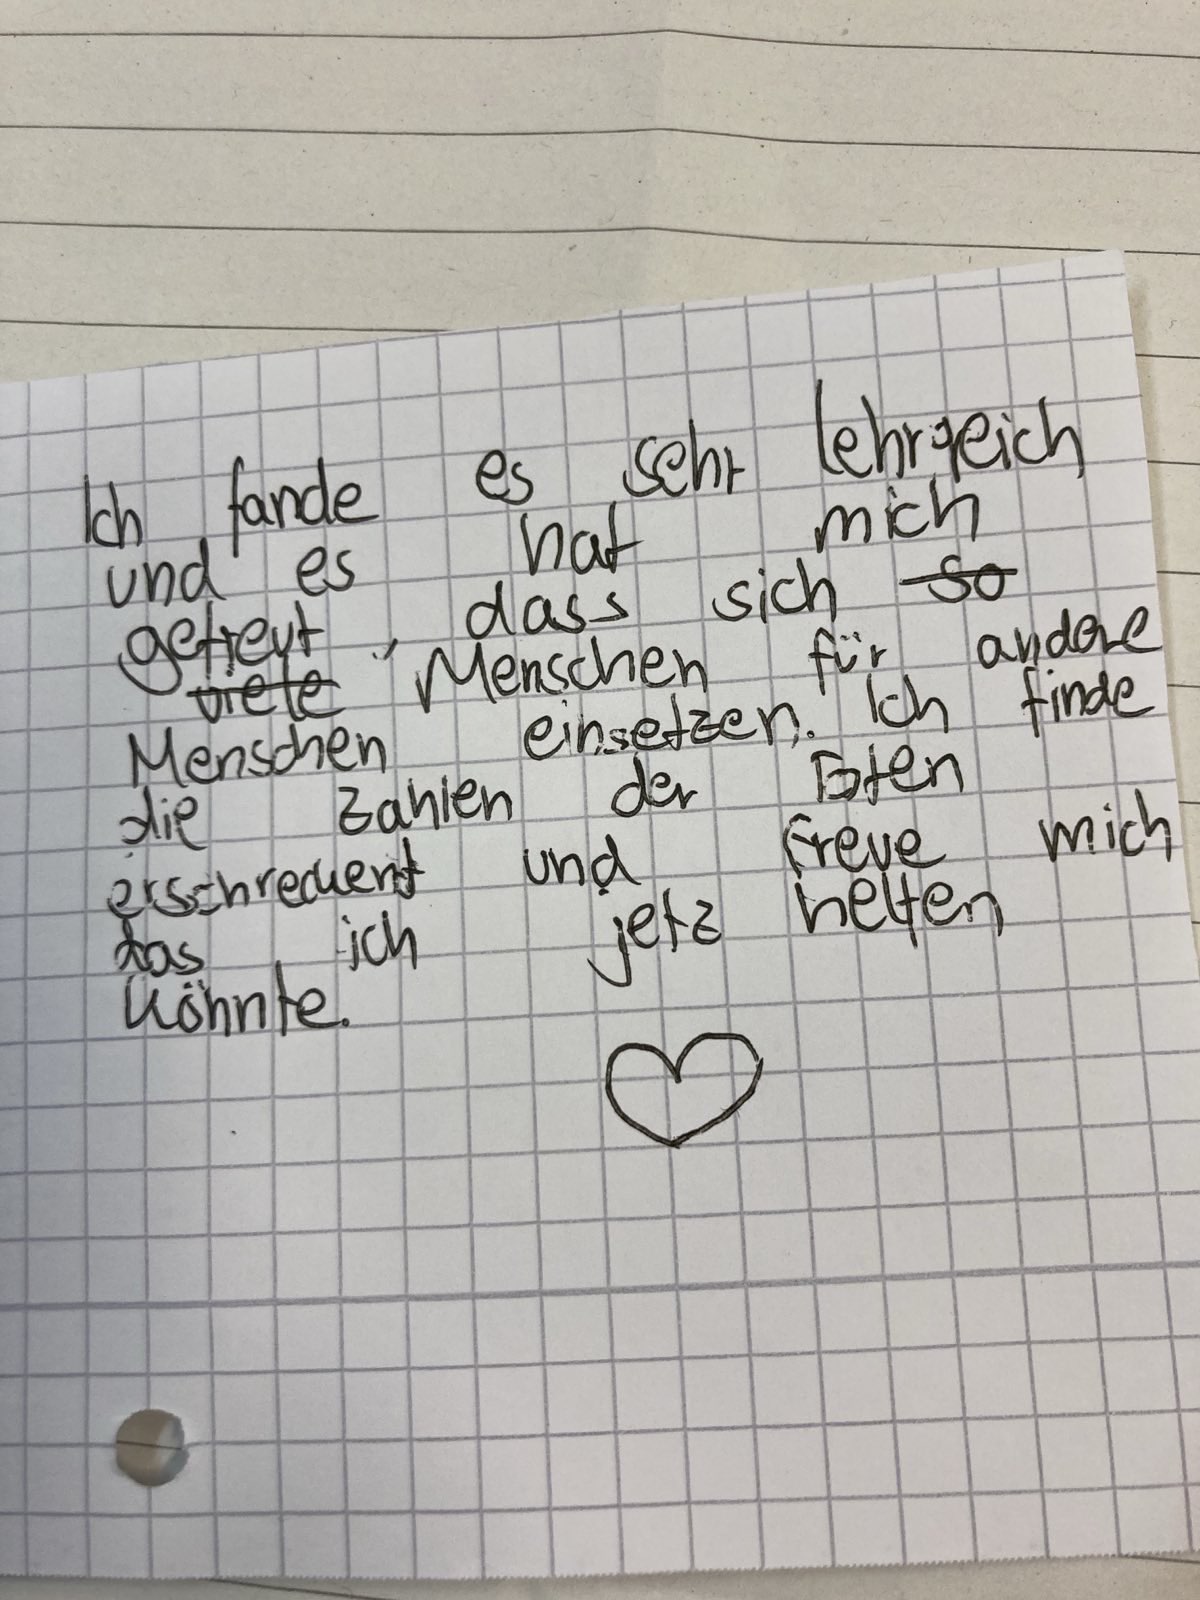 Ich fande es sehr lehrreich
und es hat mich
gefreut, dass sich so
viele Menschen für andere
Menschen einsetzen. Ich finde
die Zahlen der Toten
erschreckent und freue mich
das ich jetz helfen
könnte.